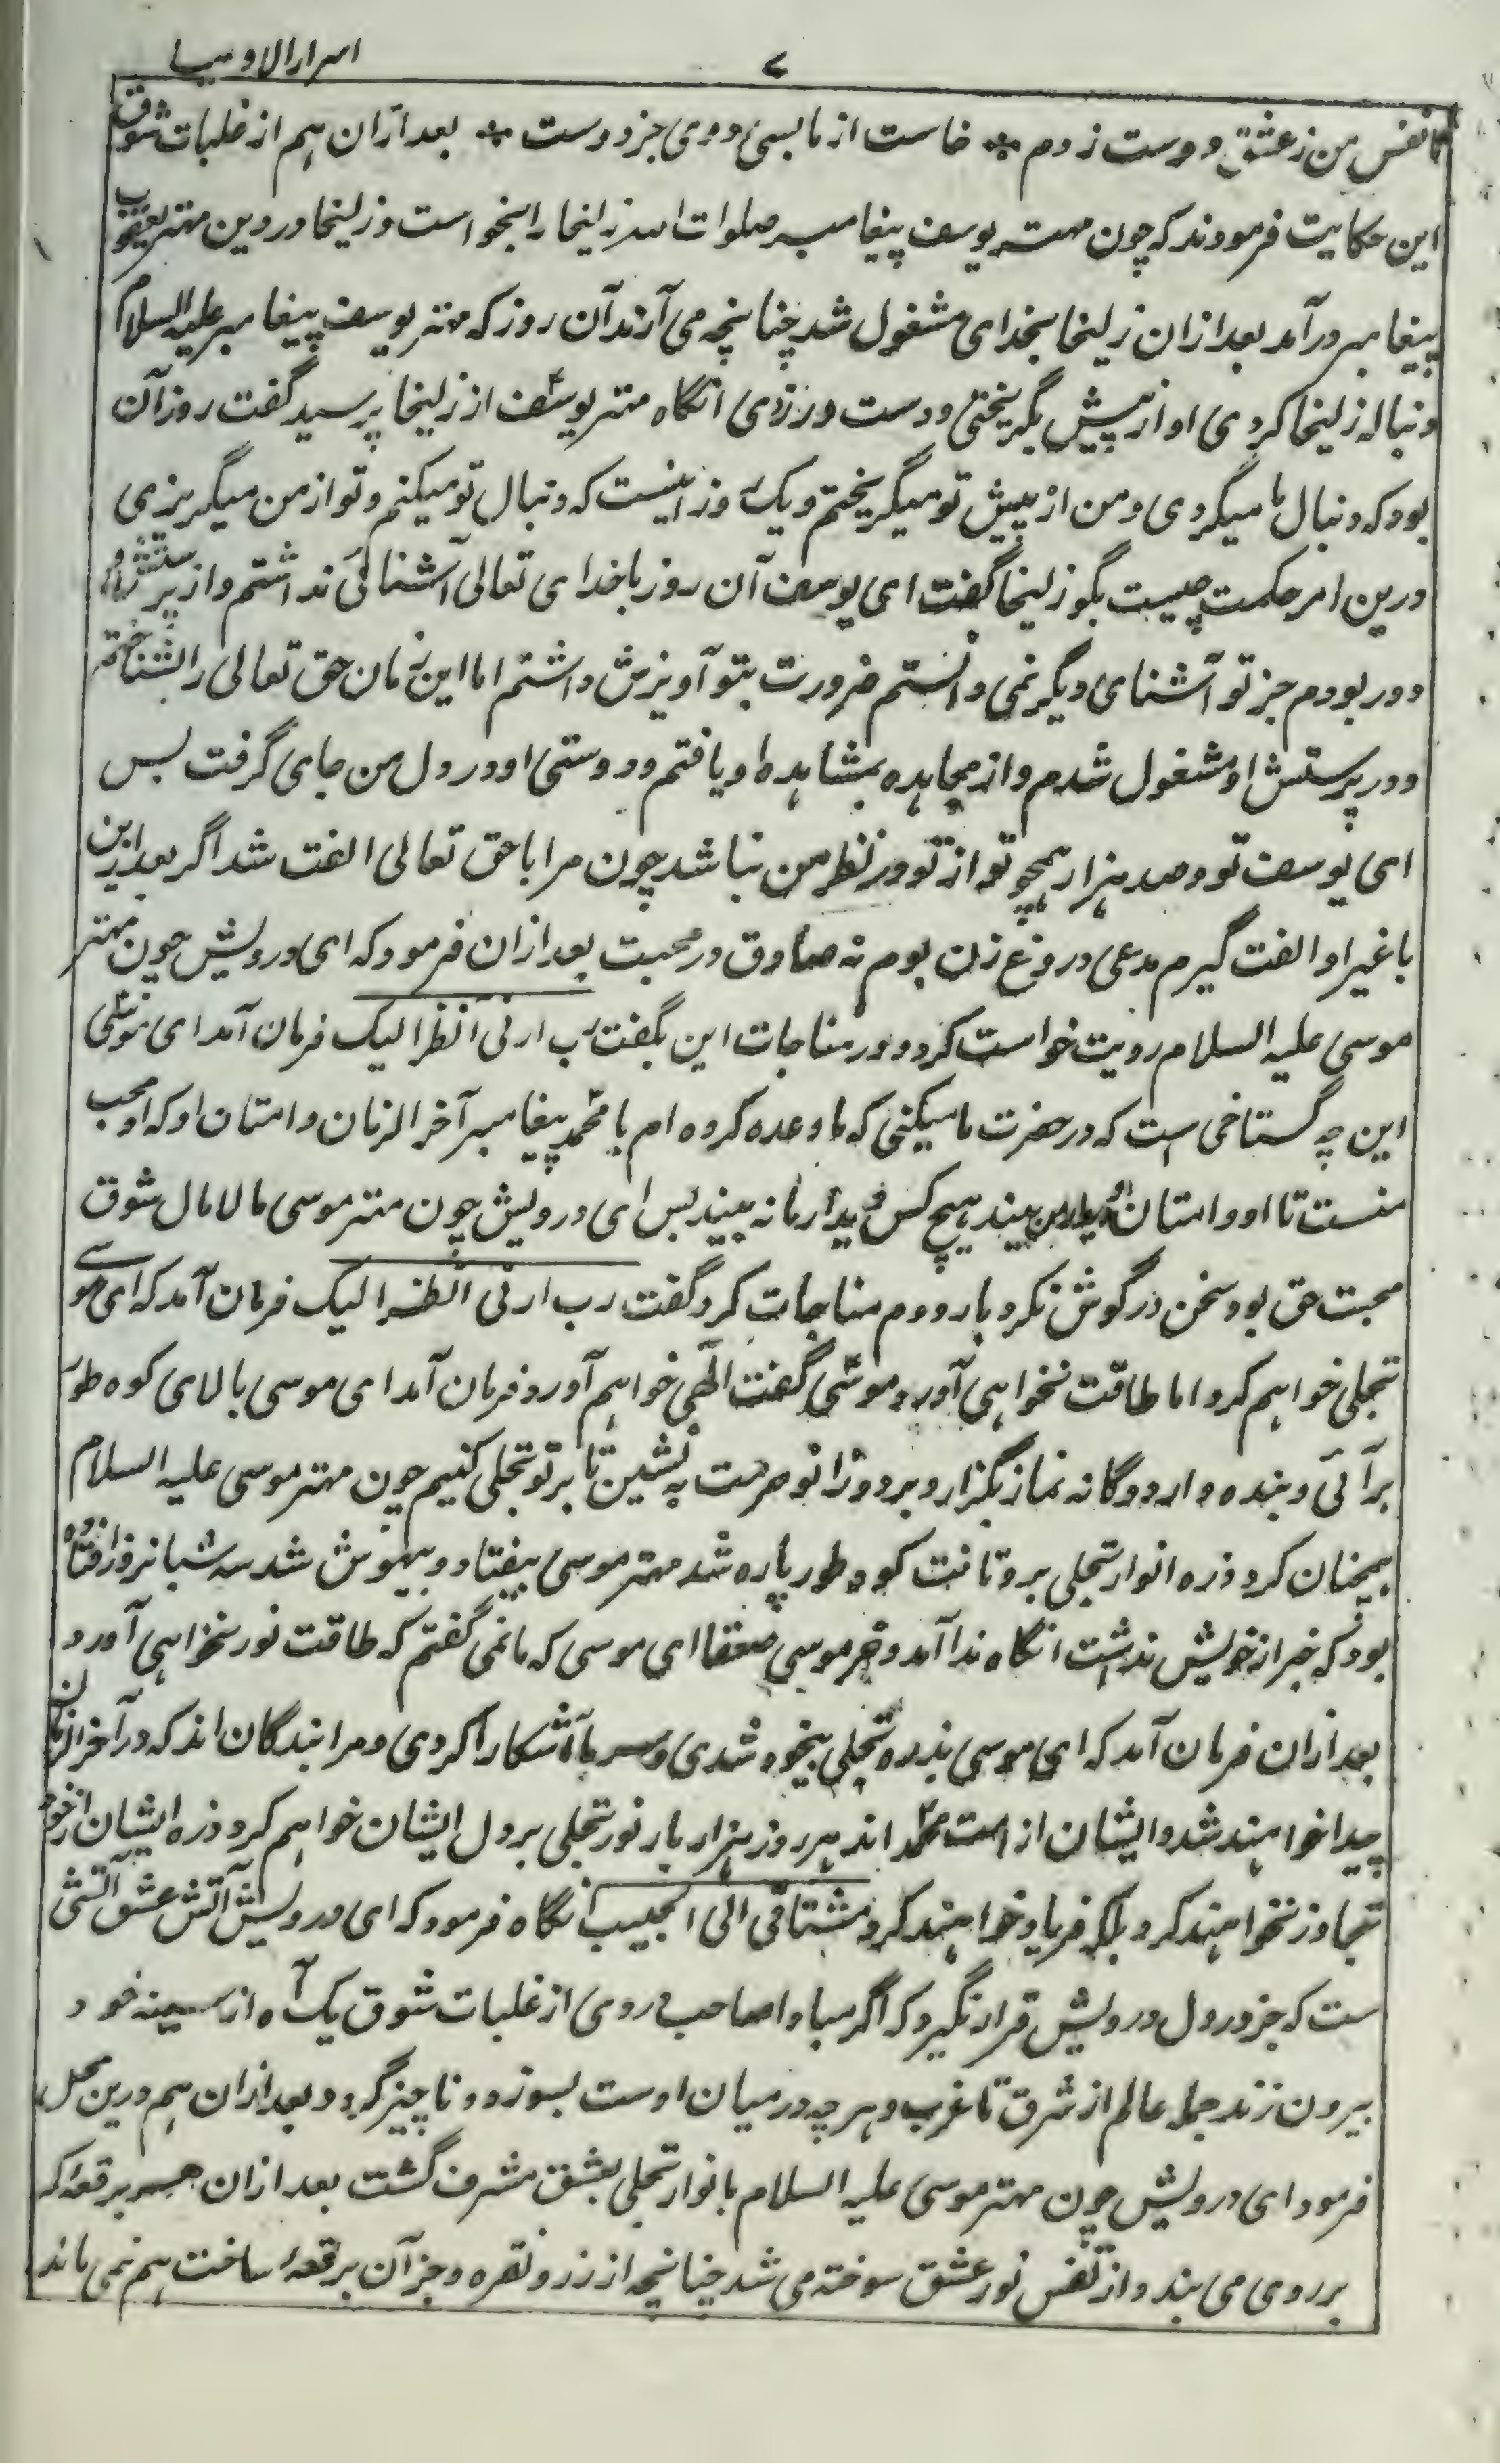 اسرارالاولیا
۷
تا نفس من ز عشق دوست زدم * خاست از ما بسی دوی جز دوست * بعد ازان هم از غلبات شوق
این حکایت فرمودند که چون مهتر یوسف پیغامبر صلوات الله زلیخا را بخواست و زلیخا در دین مهتر یعقوب
پیغامبر در آمد بعد ازان زلیخا بخدای مشغول شد چنانچه می آرند آن روز که مهتر یوسف پیغامبر علیه السلام
دنباله زلیخا کردی او از پیش بگریختی و دست ور نزدی انگاه مهتر یوسف از زلیخا پرسید گفت روز آن
بود که دنبال ما میکردی و من از پیش تو میگریختم و یک روز اینست که دنبال تو میکنم و تو از من میگریزی
درین امر حکمت چیست بگو زلیخا گفت ای یوسف آن روز با خدای تعالی آشنائی نداشتم و از پرستش او
دور بودم جز تو آشنای دیگر نمی دانستم ضرورت بتو آویزش داشتم اما این زمان حق تعالی را بشناختم
و در پرستش او مشغول شدم و از مجاهده بمشاهده او یافتم و دوستی او در دل من جای گرفت پس
ای یوسف تو و صد هزار همچو تو از تو در نظر من نباشد چون مرا با حق تعالی الفت شد اگر بعد ازین
با غیر او الفت گیرم مدعی دروغ زن بوم نه صادق در محبت بعد ازان فرمود که ای درویش چون مهتر
موسی علیه السلام رویت خواست کرد و در مناجات این بگفت رب ارنی انظر الیک فرمان آمد ای موسی
این چه گستاخی است که در حضرت ما میکنی که ما وعده کرده ام با محمد پیغامبر آخر الزمان و امتان او که او محب
منست تا او و امتان او دیدار من نبیند هیچ کس دیدار ما نه بیند پس ای درویش چون مهتر موسی مالامال شوق
محبت حق بود سخن در گوش نکرد بار دوم مناجات کرد گفت رب ارنی انظر الیک فرمان آمد که ای موسی
تجلی خواهم کرد اما طاقت نخواهی آورد موسی گفت الهی خواهم آورد فرمان آمد ای موسی بالای کوه طور
برآئی و بنده وار دوگانه نماز بگزار و بر دو زانو حرمت به نشین تا بر تو تجلی کنیم چون مهتر موسی علیه السلام
همچنان کرد ذره انوار تجلی برو تافت کوه طور پاره شد مهتر موسی بیفتاد و بیهوش شد سه شبانروز افتاده
بود که خبر از خویش نداشت انگاه ندا آمد و خر موسی صعقا ای موسی که ما نمی گفتم که طاقت نور نخواهی آورد
بعد ازان فرمان آمد که ای موسی بذره تجلی بیخود شدی و سر ما آشکارا کردی و مرا بندگان اند که در آخر الزمان
پیدا خواهند شد و ایشان از امت محمد اند هر روز هزار بار نور تجلی بر دل ایشان خواهم کرد ذره ایشان از خود
تجاوز نخواهند کرد بلکه فریاد خواهند کرد مشتاقی الی الحبیب انگاه فرمود که ای درویش آتش عشق آتشی
ست که جز در دل درویش قرار نگیرد که اگر مبادا صاحب دردی از غلبات شوق یک آه از سینه خود
بیرون زند جمله عالم از شرق تا غرب و هر چه در میان اوست بسوزد و ناچیز گردد بعد ازان هم درین محل
فرمود ای درویش چون مهتر موسی علیه السلام بانوار تجلی بعشق مشرف گشت بعد ازان هر برقعه که
بر روی می بند و از نفس نور عشق سوخته می شد چنانچه از زر و نقره و جز آن برقعهٔ ساخت هم نمی ماند